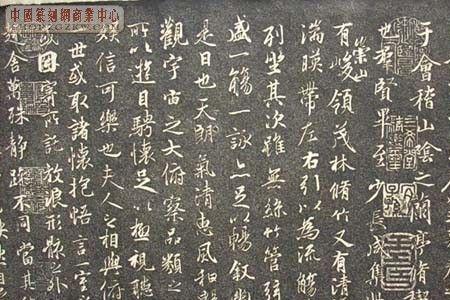 中國篆刻網商業中心
于會稽山陰之蘭亭脩禊
也羣賢畢至少長咸集
崇山
有峻領茂林脩竹又有清
湍暎帶左右引以為流觴
列坐其次雖無絲竹管弦
盛一觴一詠亦足以暢敘幽
是日也天朗氣清惠風和暢
觀宇宙之大俯察品類之
所以遊目騁懷足以極視聽
娛信可樂也夫人之相與俯
世或取諸懷抱悟言一室
因寄所託放浪形骸之外
舍萬殊靜躁不同當其